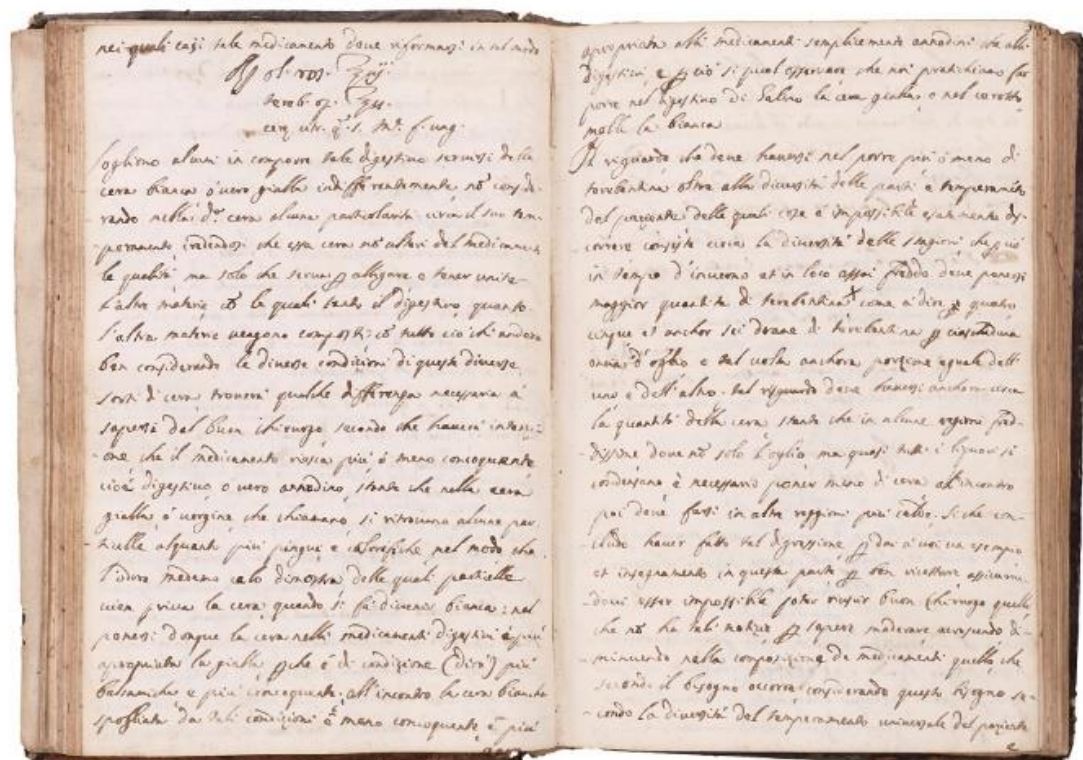 nei quali casi tale medicamento deue riformarsi in tal modo
ol. ros.
tereb.
cerę s. f. ung.
sogliono alcuni in comporre tale digestiuo seruirsi della
cera bianca ò uero gialla indifferentemente nō conside-
rando nella d.ª cera alcuna particolarità circa il suo tem-
peramento credendosi che essa cera nō alteri del medicamento
le qualità ma solo che serua ꝑ allegare o tener unite
l'altre materie cō le quali tanto il digestiuo quanto
l'altre materie uengono composti; cō tutto ciò chi anderà
ben considerando le diuerse condizioni di queste diuerse
sorti di cera trouerà qualche differenza necessaria à
sapersi dal buon chirurgo secondo che hauerà intenzi-
one che il medicamento riesca più ò meno concoquente
cioè digestiuo o uero annodino, stante che nella cera
gialla ò uergine che chiamano si ritrouano alcune par-
ticelle alquanto più pingue e calorefiche nel modo che
l'odore medemo ce lo dimostra delle quali particelle
uien priua la cera quando si fà diuenir bianca; nel
ponersi donque la cera nelli medicamenti digestiui è più
apropriata la gialla ꝑche è di condizione (dirò) più
balsamicha e più concoquente, all'incontro la cera bianca
spogliata da tali condizioni è meno concoquente è più
apropriata alli medicamenti semplicemente annodini che alli
digestiui, e ꝑ ciò si puol osseruare che noi pratichiamo far
porre nel digestiuo di Galeno la cera gialla, o nel cerotto
molle la bianca
Il riguardo che deue hauersi nel porre più ò meno di
terebentina oltre alla diuersità delle parti e temperamēto
del paziente delle quali cose è impossibile esatamente dis-
correre consiste circa la diuersità delle stagioni che ꝑ ciò
in tempo d'inuerno et in loco assai freddo deue ponersi
maggior quantità di terebentina come a' dire quatro
cinque et anchor sei drame di terebentina ꝑ ciascheduna
onzia d'oglio e tal uolta anchora porzione eguale dell'
uno e dell'altro. tal risguardo deue hauersi anchora circa
la quantità della cera stante che in alcune regioni fred-
dissime doue nō solo l'oglio ma quasi tutti i liquori si
condensano è necessario poner meno di cera all'incontro
poi deue farsi in altre reggioni più calde. Si che con-
cludo hauer fatto tal digressione ꝑ dar à uoi un esempio
et insegnamento in questa parte ꝑ ben assicuran-
doui esser impossibile poter riusir buon Chirurgo quello
che nō ha tali notizie ꝑ sapere moderare acresendo di-
minuendo nella composizione de medicamenti quello che
secondo il bisogno occorre; considerando questo bisogno se-
condo la diuersità del temperamento uniuersale del paziente
e